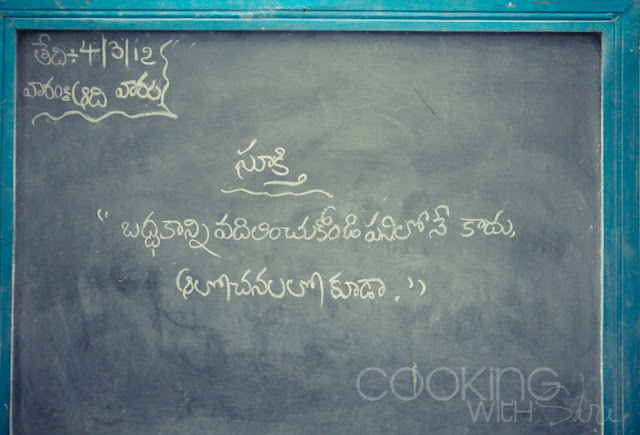 తేది÷ 4/3/12
వారం: ఆది వారము
సూక్తి
“బద్ధకాన్ని వదిలించుకోండి పనిలోనే కాదు,
ఆలోచనలలో కూడా.”
COOKING
WITH Siri